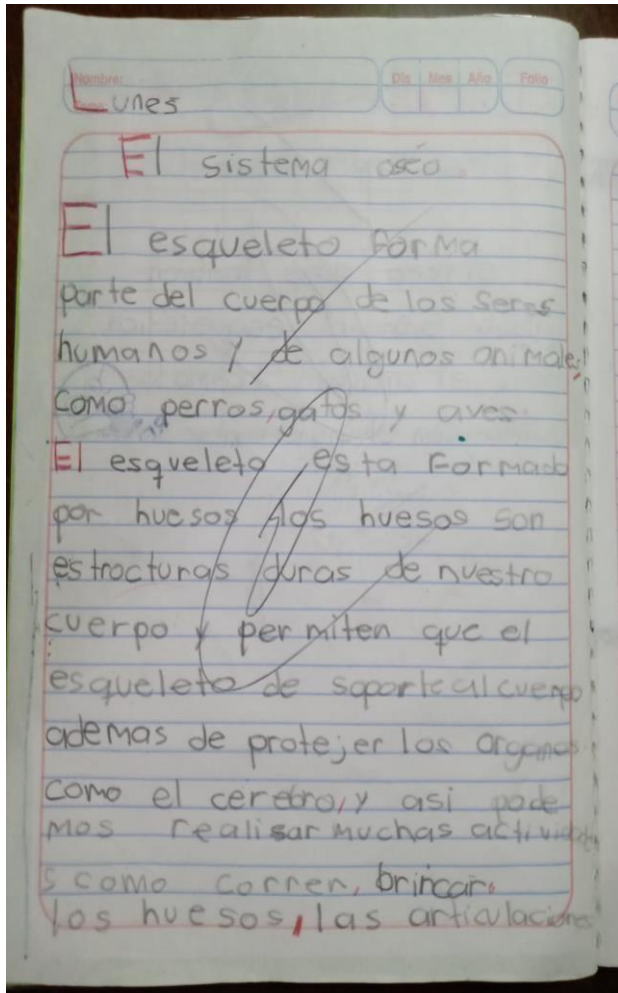 Nombre:
Día Mes Año Folio
Lunes
El sistema oseo
El esqueleto forma
parte del cuerpo de los seres
humanos y de algunos animales,
como perros, gatos y aves.
El esqueleto esta Formado
por huesos, los huesos son
estructuras duras de nuestro
cuerpo y permiten que el
esqueleto de soporte al cuerpo
ademas de protejer los organos
como el cerebro, y asi pode
mos realisar muchas actividade
s como correr, brincar.
los huesos, las articulaciones